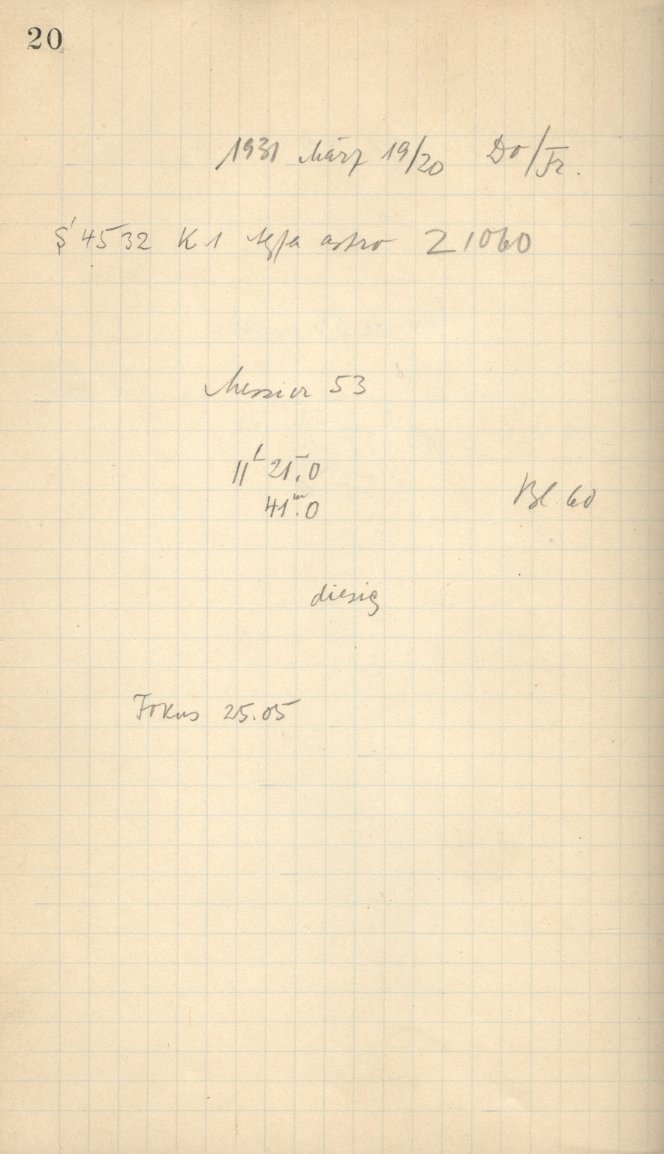 20
1931 März 19/20 Do/Fr.
S 4532 K 1 Agfa astro Z 1060
Messier 53
11ʰ 21ᵐ.0
41ᵐ.0 Bl 60
diesig
Fokus 25.05